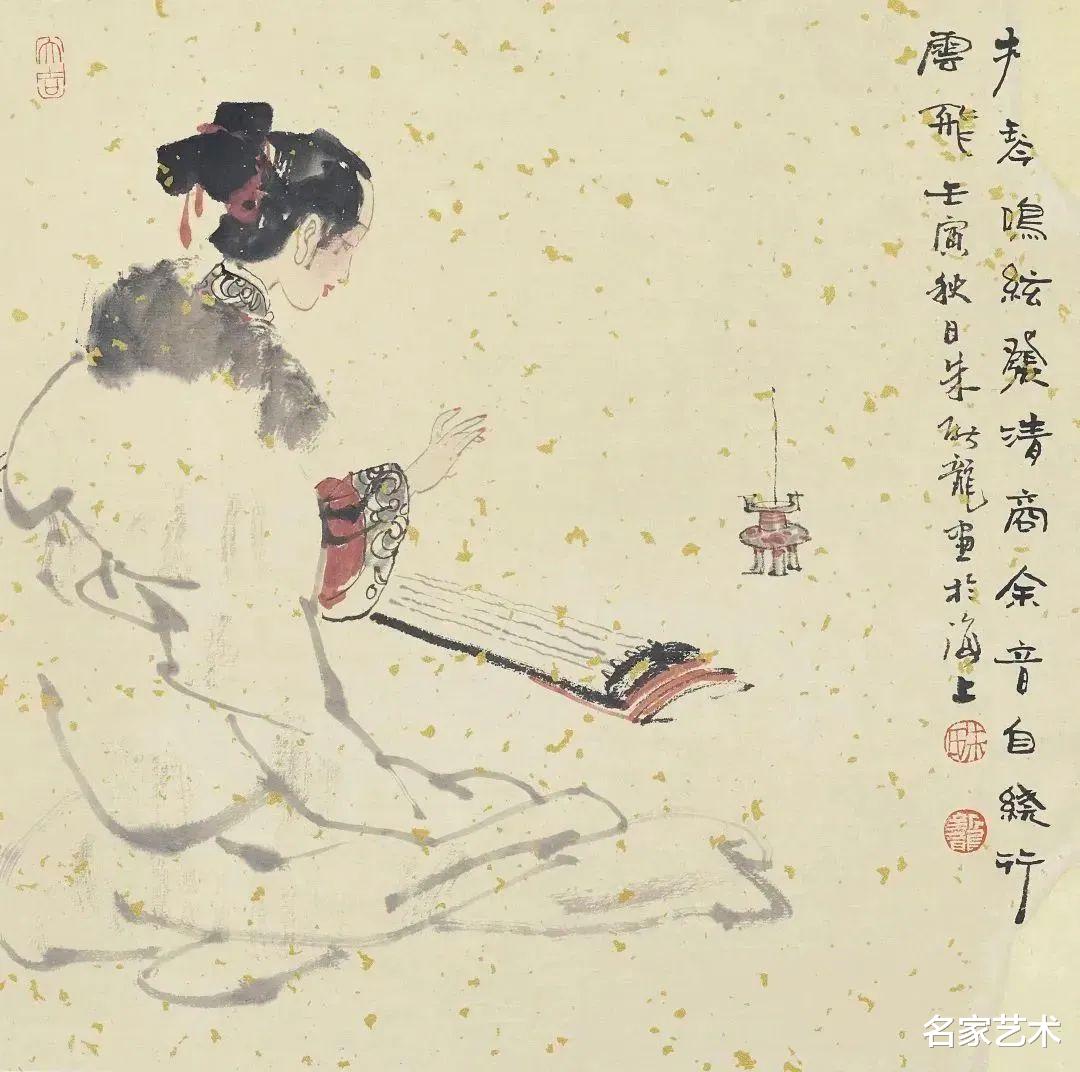 琴鳴絃發清商余音自繞行
雲飛壬寅秋日朱龍畫於海上
朱
龍
大吉
名家艺术